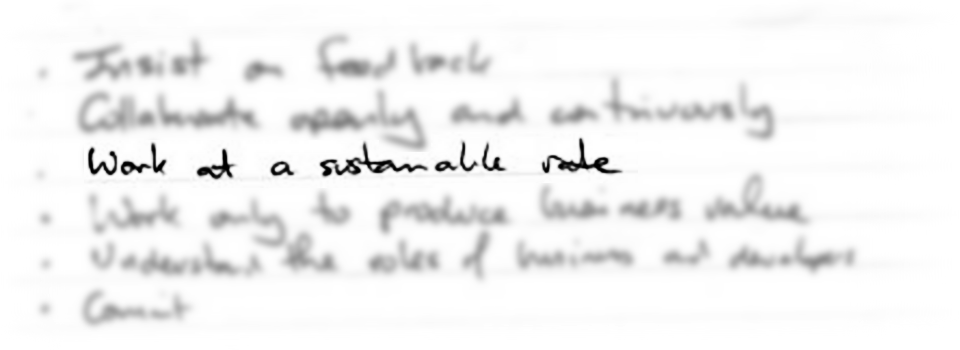 Insist on feedback
Collaborate openly and continuously
Work at a sustanable rate
Work only to produce business value
Understand the roles of business and developers
Commit